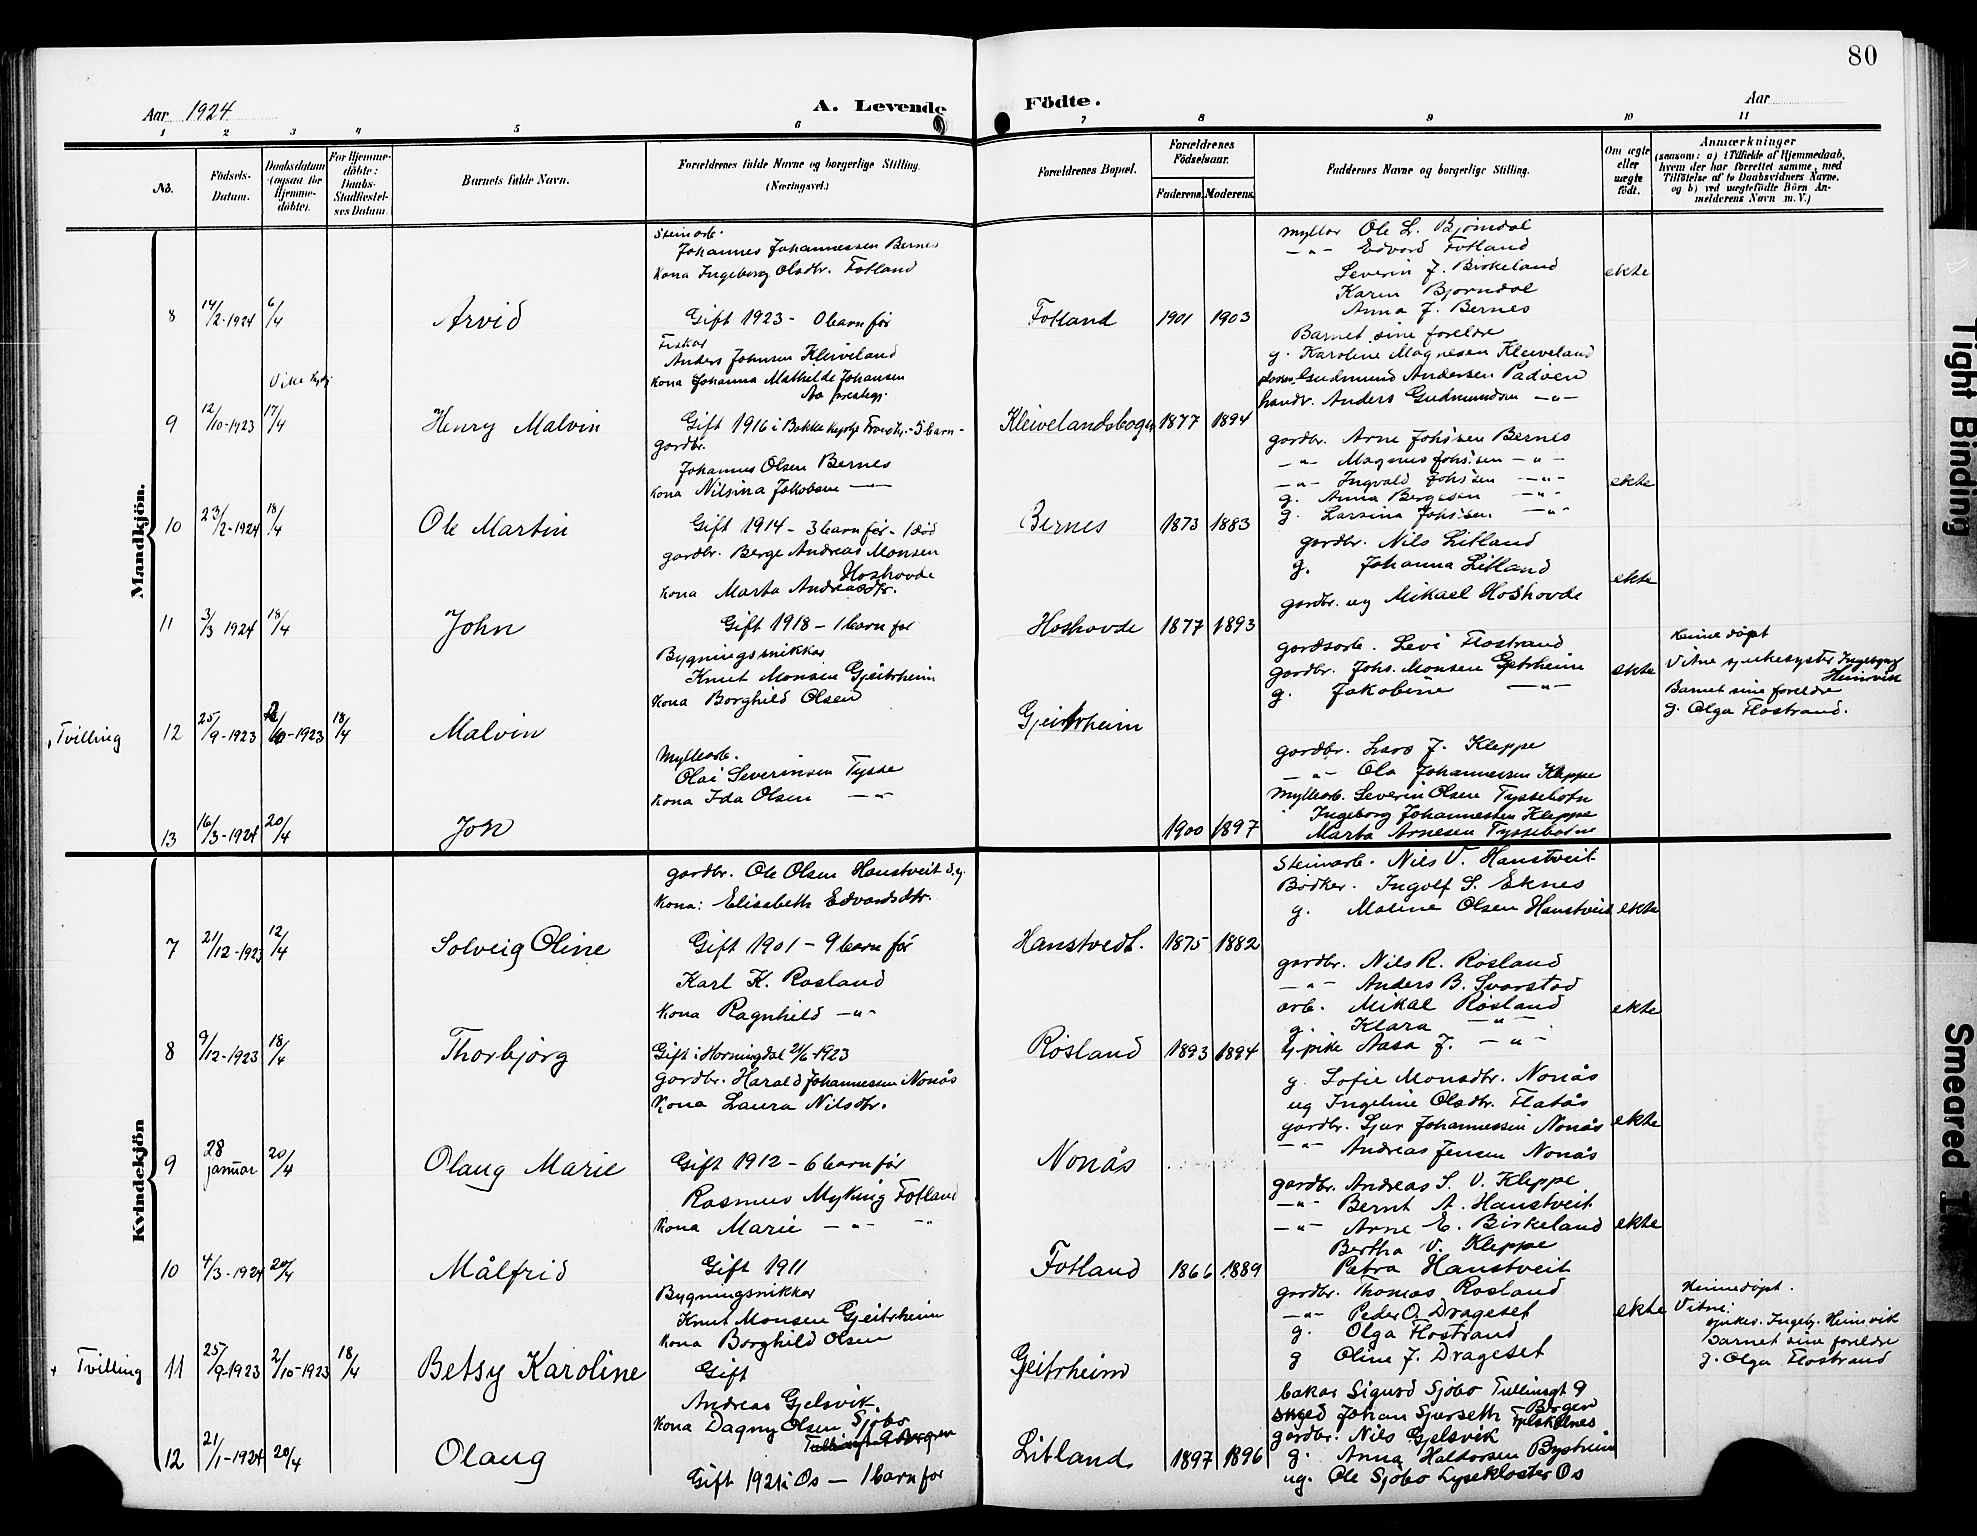 80
Aar 1924
A. Levende Födte.
Aar
1 2 3 4 5 6 7 8 9 10 11
No.
Födsels-Datum.
Daabsdatum (ogsaa for Hjemme-döbte).
For Hjemme-döbte: Daabs-Stadfæstel-ses Datum.
Barnets fulde Navn.
Forældrenes fulde Navne og borgerlige Stilling. (Næringsvei.)
Forældrenes Bopæl.
Forældrenes Födselsaar.
Faderens. Moderens.
Faddernes Navne og borgerlige Stilling.
Om ægte eller uægte født.
Anmærkninger
(saasom: a) i Tilfælde af Hjemmedaab, hvem der har forrettet samme, med Tilföielse af to Daabsvidners Navne, og b) ved uægtefödte Börn An-melderens Navn m. V.)
Mandkjön.
Steinarb.
Johannes Johannessen Bernes
Kona Ingeborg Olsdtr. Fotland
8 14/2-1924 6/4 Arvid Gift 1923 - 0 barn før Fotland 1901 1903
Myllar Ole L. Bjørndal
-"- Edvard Fotland
Severin J. Birkeland
Karen Bjørndal
Anna J. Bernes
ekte
Fiskar
Anders Johnsen Kleiveland
Kona Johanna Mathilde Johansen
9 12/10-1923 17/4 Henry Malvin Gift 1916 i Bakke kyrkje - 5 barn - Kleivelandsbogen 1877 1894
Barnet sine foreldre
g. Karoline Magnesen Kleiveland
Gudmund Andersen Padøen
handr. Anders Gudmundsen -"-
gardbr.
Johannes Olsen Bernes
Kona Nilsina Jakobsen
10 23/2-1924 18/4 Ole Martin Gift 1914 - 3 barn før - 1 død Bernes 1873 1883
gardbr. Arne Johssen Bernes
-"- Magnus Johssen -"-
-"- Ingvald Johssen -"-
g. Anna Bergesen -"-
g. Larsina Johssen -"-
ekte
gardbr. Berge Andreas Monsen Hoshovde
Kona Marta Andreasdtr.
11 3/3 1924 18/4 John Gift 1918 - 1 barn før Hoshovde 1877 1893
gardbr. Nils Litland
g. Johanna Litland
gardbr. ug Mikael Hoshovde
ekte
Bygningssnikkar
Knut Monsen Gjeitrheim
Kona Borghild Olsen
Tvilling 12 25/9-1923 2/10-1923 18/4 Malvin Gjeitrheim
gardsarb. Levi Flostrand
gardbr. Johs. Monsen Gjeitrheim
g. Jakobine -"-
ekte
Heimedøpt
Vitne sjukesyster Ingebjørg Heimvik
Barnet sine foreldre
g. Olga Flostrand.
Myllearb.
Olai Severinsen Tysse
Kona Ida Olsen -"-
13 16/3-1924 20/4 Jon 1900 1897
gardbr. Lars J. Kleppe
-"- Ola Johannessen Kleppe
Myllearb. Severin Olsen Tyssebotn
Ingeborg Johannessen Kleppe
Marta Arnesen Tyssebotn
Kvindekjön
gardbr. Ole Olsen Hanstveit d.y.
Kona: Elisabeth Edvardsdtr.
7 21/12-1923 12/4 Solveig Oline Gift 1901 - 9 barn før Hanstvedt. 1875 1882
Steinarb. Nils V. Hanstveit
Bødker. Ingolf S. Eknes
g. Maline Olsen Hanstveit ekte
Karl K. Rosland
Kona Ragnhild -"-
8 9/12-1923 18/4 Thorbjørg Gift i Horningdal 21/6-1923 Røsland 1893 1894
gardbr. Nils R. Røsland
-"- Anders B. Svarstad
arb. Mikal Røsland
g. Klara -"-
pike Aasa J. -"-
ekte
gardbr. Harald Johannessen Nonås
Kona Laura Nilsdtr.
9 28 januar 20/4 Olaug Marie Gift 1912 - 6 barn før Nonås
g. Sofie Monsdtr. Nonås
ug Ingeline Olsdtr. Flatås
gardbr. Sjur Johannessen Nonås
-"- Andreas Jensen Nonås
ekte
Rasmus Myking Fotland
Kona Marie -"- -"-
10 4/3-1924 20/4 Målfrid Gift 1911 Fotland 1866 1889
gardbr. Andreas S. V. Kleppe
-"- Bernt A. Hanstveit
-"- Arne E. Birkeland
Bertha V. Kleppe
Petra Hanstveit
ekte
Bygningssnikkar
Knut Monsen Gjeitrheim
Kona Borghild Olsen
Tvilling 11 25/9-1923 2/10-1923 18/4 Betsy Karoline Gift Geitrheim
gardbr. Thomas Rosland
-"- Peder O. Drageset
g. Olga Flostrand
g Oline J. Drageset
ekte
Heimedøpt.
Vitne:
sjukes. Ingebj. Heimvik
Barnet sine foreldre
g. Olga Flostrand
Andreas Gjelsvik
Kona Dagny Olsen Sjøbø
12 21/1-1924 20/4 Olaug Gift 1921 i Os - 1 barn før Litland 1897 1896
bakar Sigurd Sjøbø Tullinsgt 9 Bergen
smed Johan Sjurseth Fjelskålnes
gardbr. Nils Gjelsvik
g. Anna Haldorsen Bysheim
ug. Ole Sjøbø Lysekloster Os
Tight Binding
Smeared